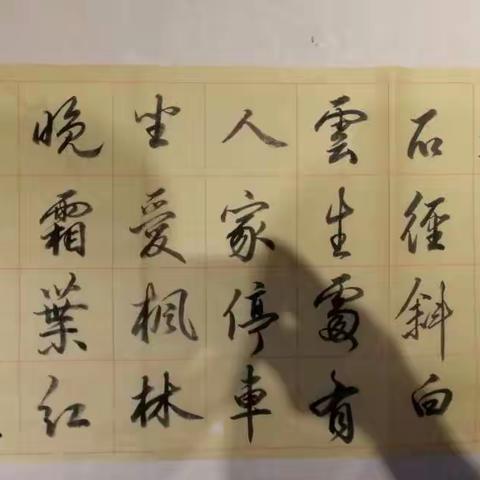 石徑斜白
雲生處有
人家停車
坐愛楓林
晚霜葉紅